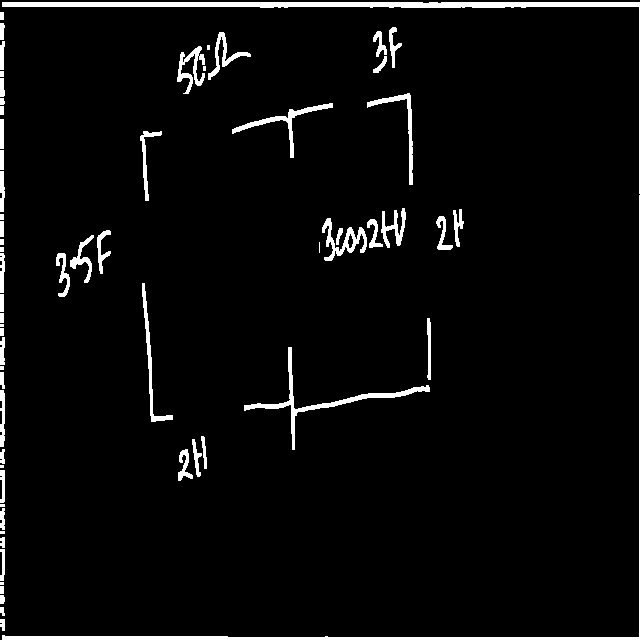 50Ω
3F
3.5F
3cos2tV
2H
2H